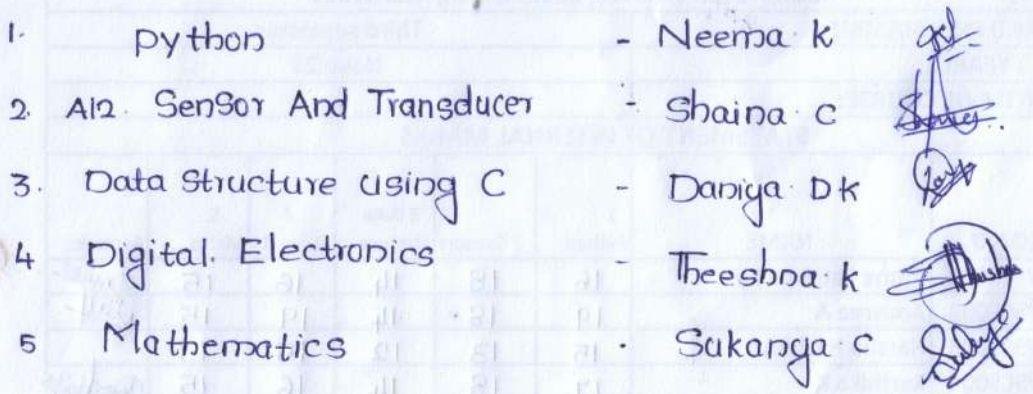 1. Python - Neema K
2. A12. Sensor And Transducer - Shaina C
3. Data Structure using C - Daniya D K
4 Digital Electronics - Theeshna K
5 Mathematics . Sukanya C